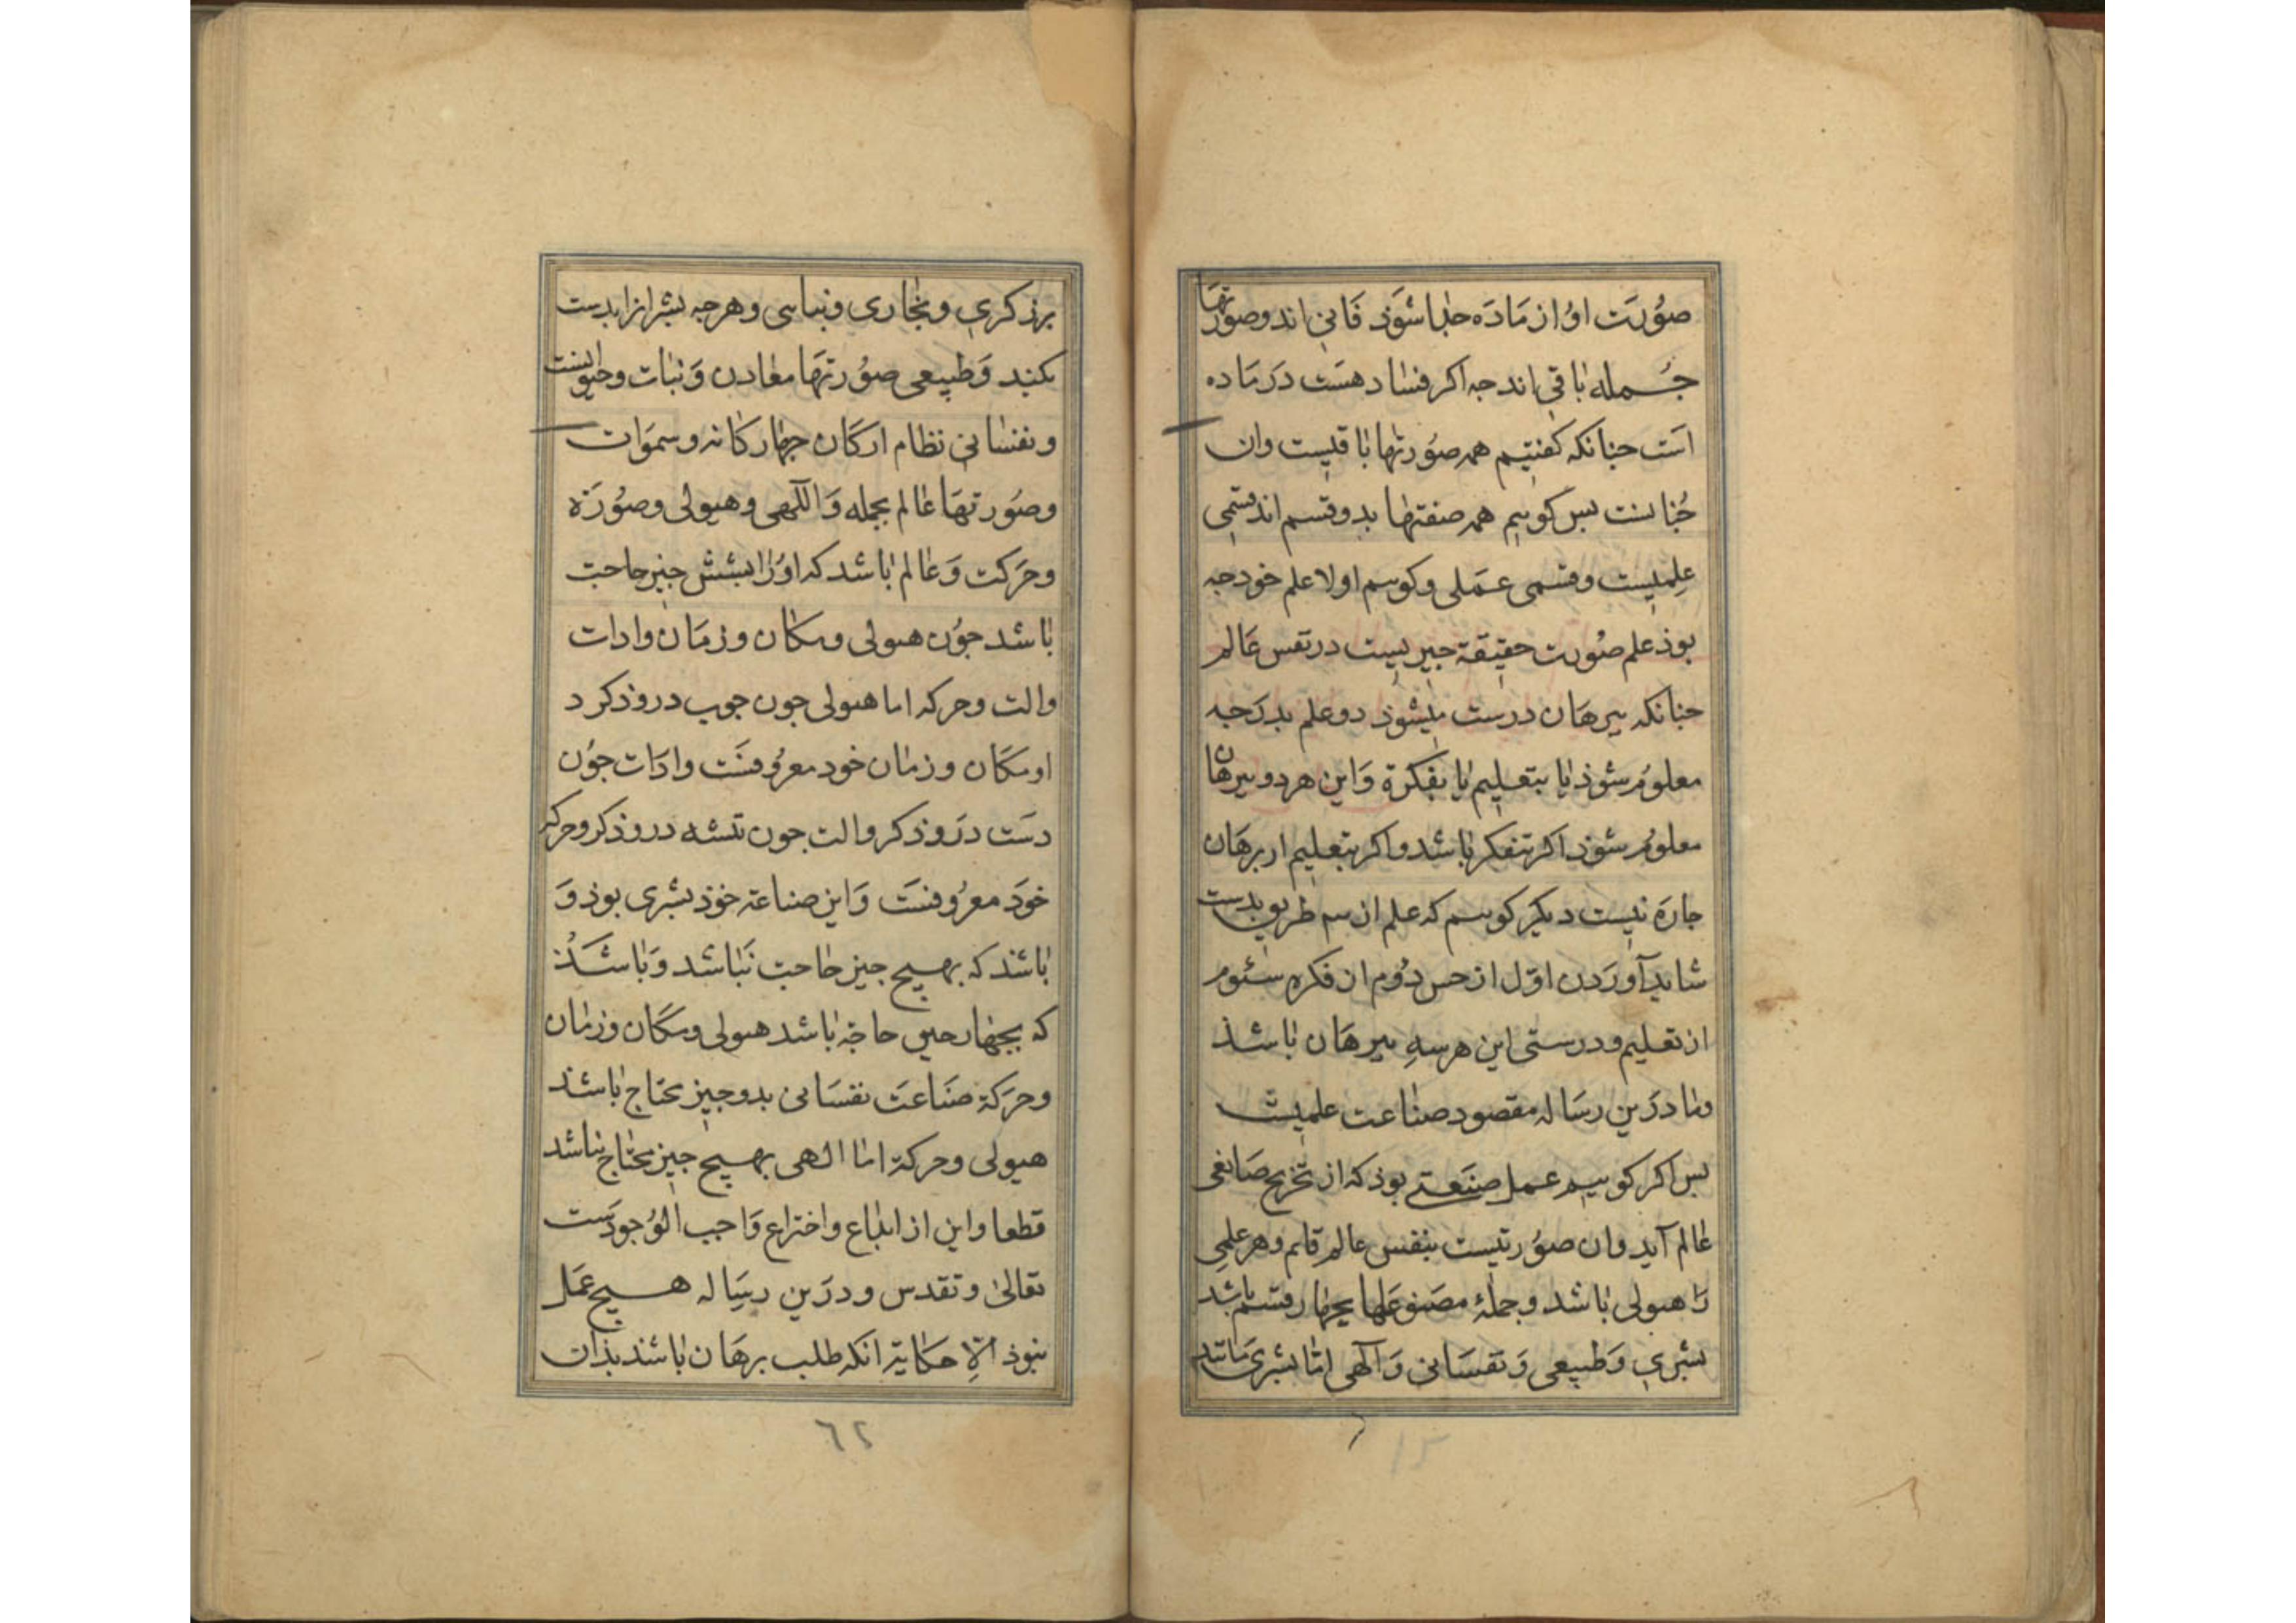 صُورَت اوُ از مَادَه جدا شوَذ فَانی اند وصورتها
جُمله باقی اند جه اکر فساد هسَت دَر مَاده
است جنانکه کفتیم همه صوُرتها باقیست وان
جُنانست بس کوییم همه صنعتها بدو قسم اند قسمی
عِلمیست وقسمی عَملی وکوییم اولا علم خود جه
بوذ علم صوُرت حقیقة جیزیست در نفس عَالم
جنانکه ببرهان درست میشوذ دو علم بدرجه
معلوُم شوذ یا بتعلیم یا بفکرة وَاین هر دو ببرهان
معلوُم شوذ اکر بتفکر باشد واکر بتعلیم از برهَان
جارَه نیست دیکر کوییم که علم از سه طریق بدست
شاید آورَدن اوّل از حس دوُم از فکره سئوم
از تعلیم ودرستی این هر سهِ ببرهَان باشذ
وما درَین رسَاله مقصود صناعت علمیست
بس اکر کوییم عمل صنعتی بوذ که از تخریج صَانعی
عَالم آید وان صوُرتیست بنفس عالم قایم وهر علمی
رَا هیولی باشد وجملهٔ مصنوعَها بجهار قسم باشد
بشری وَطبیعی وَنفسَانی وَآلهی امّا بشری مَانند
برزکری ونجاری ونساجی وهرجه بشر انرا بدست
بکنند وَطبیعی صوُرتهَا معَادن وَنبات وحیوانست
ونفسانی نظام ارکَان جهار کانه وسموَات
وصُورتهَا عَالم بجمله وَالآلهی وهیولی وصُورَة
وحرَکت وَعَالم باشد که اوُرا بشش جیز حاجت
باشد جوُن هیولی ومکان وزمَان وادات
والت وحرکه اما هیولی جون جوب دروذکر د
او مکَان وزمان خود معرُوفسَت وادَات جوُن
دسَت درَوذکر والت جون تیشه دروذکر وحرکه
خودَ معرُوفسَت وَاین صناعة خوذ بشری بوذ وَ
باشذ که بهیج جیز حاجت نبَاشد وَباشَذ
که بجهار جیز حاجة باشد هیولی ومکَان وزمان
وحرَکة صنَاعَت نفسَانی بدو جیز محتاج باشذ
هیولی وحرکة اما الهی بهیج جیز محتاج نباشد
قطعا واین از ابداع واختراع وَاجب الوُجودسَت
تعالیٰ وتقدس ودرَین رسَاله هیج عمَل
نبوذ الّا حکایة انکه طلب برهَان باشذ بذان
٦٢